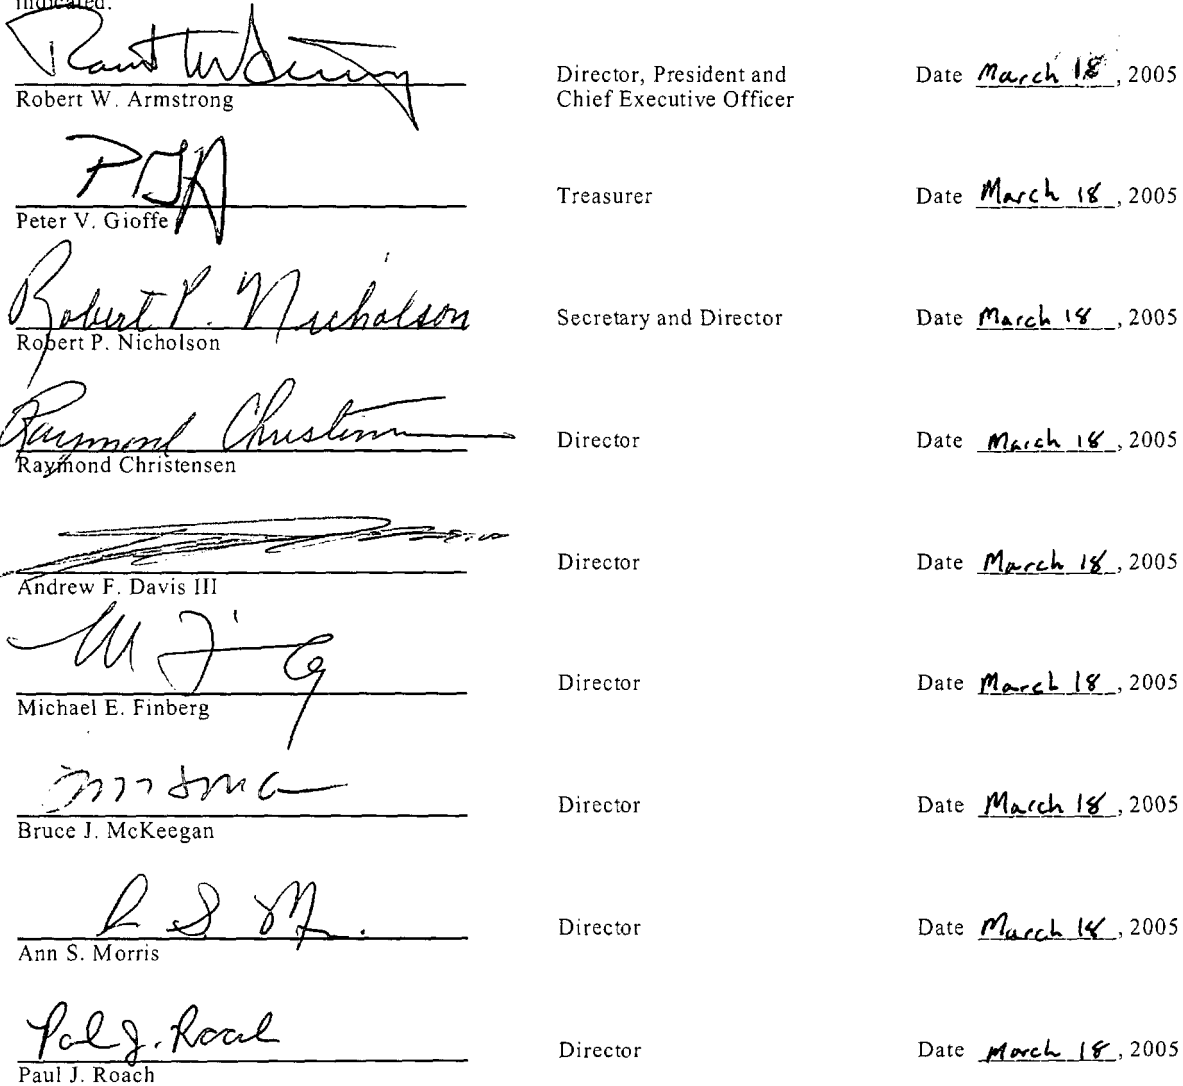 indicated.
Robert W. Armstrong
Director, President and
Chief Executive Officer
Date March 18, 2005
Peter V. Gioffe
Treasurer
Date March 18, 2005
Robert P. Nicholson
Robert P. Nicholson
Secretary and Director
Date March 18, 2005
Raymond Christensen
Raymond Christensen
Director
Date March 18, 2005
Andrew F. Davis III
Director
Date March 18, 2005
Michael E. Finberg
Director
Date March 18, 2005
Bruce J. McKeegan
Director
Date March 18, 2005
Ann S. Morris
Director
Date March 18, 2005
Paul J. Roach
Paul J. Roach
Director
Date March 18, 2005